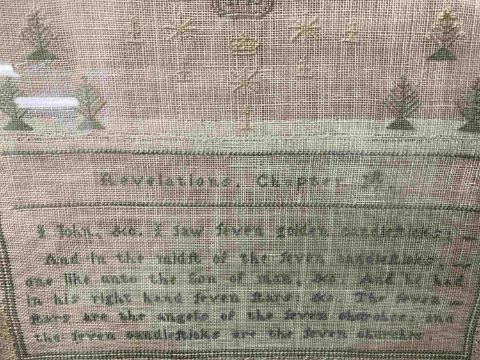 Revelations, Chapter
I John, &c. I ſaw ſeven golden candleſticks; —
And in the midſt of the ſeven candleſticks, —
one like unto the Son of man, &c. And he had
in his right hand ſeven ſtars: &c. The ſeven —
ſtars are the angels of the ſeven churches: and
the ſeven candleſticks are the ſeven churches